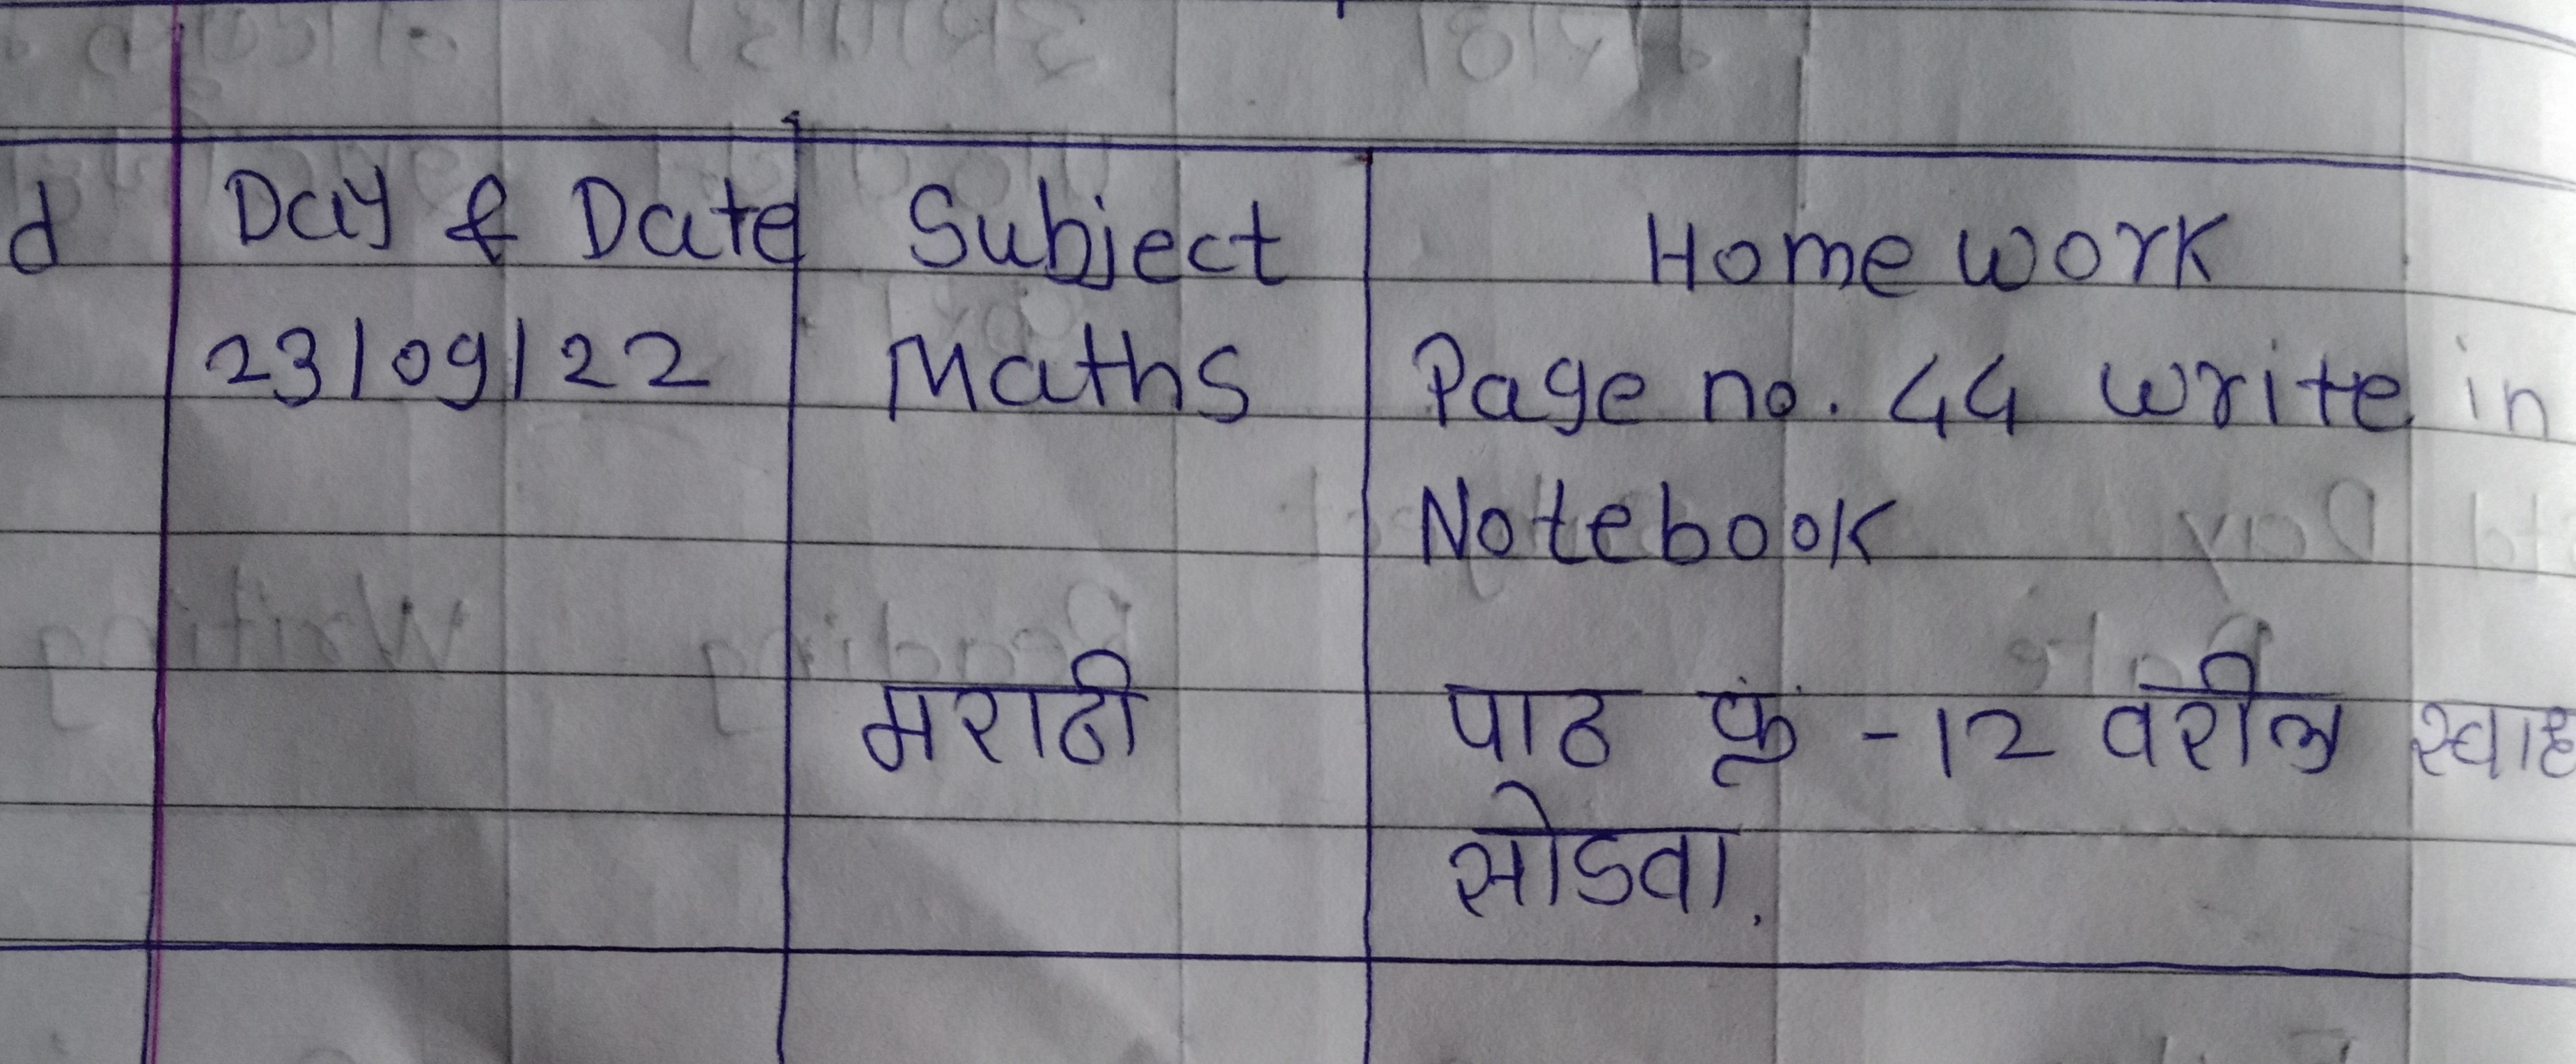 d Day & Date Subject Home work
23/09/22 Maths Page no. 44 write in
Notebook
मराठी पाठ क्रं -12 वरील
सोडवा.